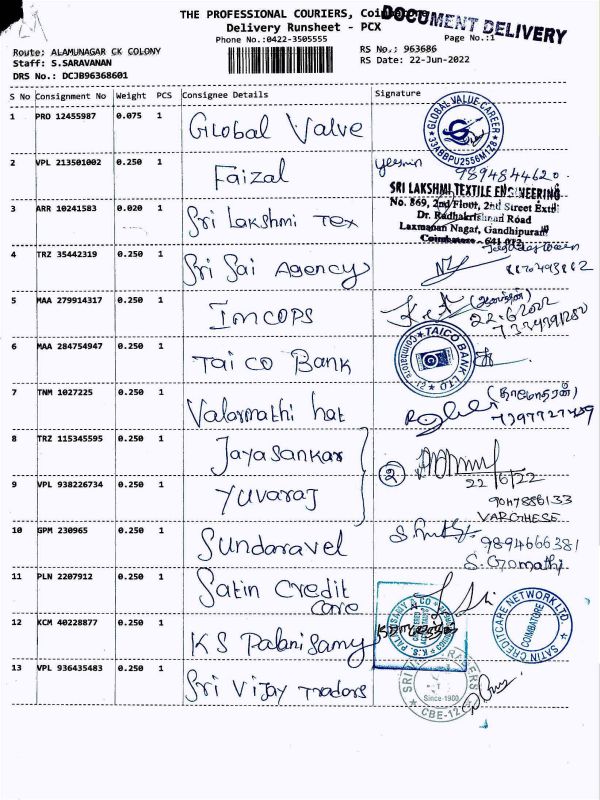 THE PROFESSIONAL COURIERS,
DOCUMENT DELIVERY
Delivery Runsheet - PCX
Phone No.:0422-3505555
Page No.:1
Route: ALAMUNAGAR CK COLONY
RS No.: 963686
Staff: S.SARAVANAN
RS Date: 22-Jun-2022
DRS No.: DCJB96368601
S No Consignment No Weight PCS Consignee Details Signature
1 PRO 12455987 0.075 1 Global Valve
GLOBAL VALVE CAREER
2 VPL 213501002 0.250 1 Faizal
9894844620
SRI LAKSHMI TEXTILE ENGINEERING
No. 869, 2nd Floor, 2nd Street Extn
Dr. Radhakrishnan Road
Laxmanan Nagar, Gandhipuram
Coimbatore - 641 012
3 ARR 10241583 0.020 1 Sri Lakshmi Tex
4 TRZ 35442319 0.250 1 Sri Sai Agency
5 MAA 279914317 0.250 1 IMCOPS
22.6.2022
6 MAA 284754947 0.250 1 Taico Bank
TAICO BANK LTD
7 TNM 1027225 0.250 1 Valarmathi hat
8 TRZ 115345595 0.250 1 Jayasankar
9 VPL 938226734 0.250 1 Yuvaraj
2
22/6/22
VARGHESE
10 GPM 230965 0.250 1 Sundaravel
9894666381
S. Gomathi
11 PLN 2207912 0.250 1 Satin Credit
care
SATIN CREDITCARE NETWORK LTD.
COIMBATORE
12 KCM 40228877 0.250 1 KS Palanisamy
K.S. PALANISAMY & CO
13 VPL 936435483 0.250 1 Sri Vijay Tradors
Since-1980
CBE-12